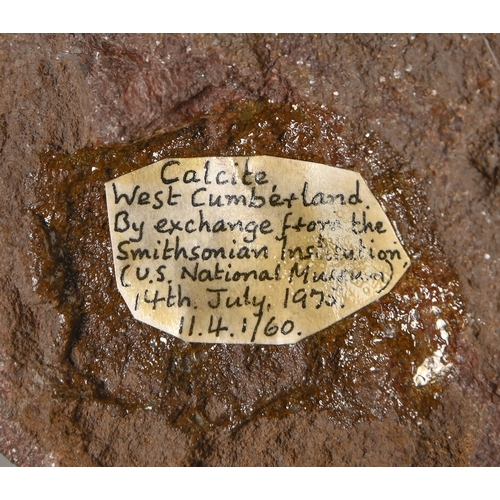 Calcite
West Cumberland.
By exchange from the
Smithsonian Institution
(U.S. National Museum)
14th. July,
11.4.1/60.